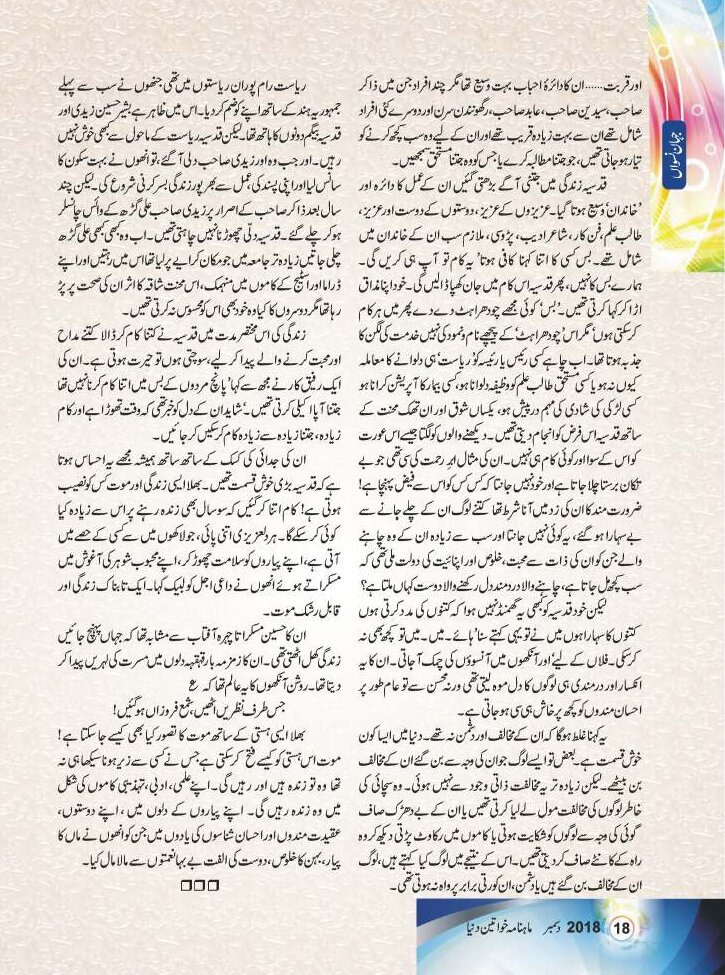 جہانِ نسواں
اور قربت...... ان کا دائرۂ احباب بہت وسیع تھا مگر چند افراد جن میں ذاکر
صاحب، سیدین صاحب، عابد صاحب، رگھونندن سرن اور دوسرے کئی افراد
شامل تھے ان سے بہت زیادہ قریب تھے اور ان کے لیے وہ سب کچھ کرنے کو
تیار ہو جاتی تھیں، جو جتنا مطالبہ کرے یا جس کو وہ جتنا مستحق سمجھیں۔
قدسیہ زندگی میں جتنی آگے بڑھتی گئیں ان کے عمل کا دائرہ اور
’خاندان‘ وسیع ہوتا گیا۔ عزیزوں کے عزیز، دوستوں کے دوست اور عزیز،
طالب علم، فن کار، شاعر ادیب، پڑوسی، ملازم سب ان کے خاندان میں
شامل تھے۔ بس کسی کا اتنا کہنا کافی ہوتا ’یہ کام تو آپ ہی کریں گی۔
ہمارے بس کا نہیں‘، پھر قدسیہ اس کام میں جان کھپا ڈالیں گی۔ خود اپنا مذاق
اڑا کر کہا کرتی تھیں۔ ’بس‘ کوئی مجھے چودھراہٹ دے دے پھر میں ہر کام
کر سکتی ہوں‘ مگر اس ’چودھراہٹ‘ کے پیچھے نام و نمود کی نہیں خدمت کی لگن کا
جذبہ ہوتا تھا۔ اب چاہے کسی رئیس یا رئیسہ کو ’ریاست‘ ہی دلوانے کا معاملہ
کیوں نہ ہو یا کسی مستحق طالب علم کو وظیفہ دلوانا ہو، کسی بیمار کا آپریشن کرانا ہو
کسی لڑکی کی شادی کی مہم درپیش ہو، یکساں شوق اور ان تھک محنت کے
ساتھ قدسیہ اس فرض کو انجام دیتی تھیں۔ دیکھنے والوں کو لگتا جیسے اس عورت
کو اس کے سوا اور کوئی کام ہی نہیں۔ ان کی مثال ابرِ رحمت کی سی تھی جو بے
تکان برستا چلا جاتا ہے اور خود نہیں جانتا کہ کس کس کو اس سے فیض پہنچا ہے!
ضرورت مند کا ان کی زد میں آنا شرط تھا کتنے لوگ ان کے چلے جانے سے
بے سہارا ہو گئے، یہ کوئی نہیں جانتا اور سب سے زیادہ ان کے وہ چاہنے
والے جن کو ان کی ذات سے محبت، خلوص اور اپنائیت کی دولت ملی تھی کہ
سب کچھ مل جاتا ہے، چاہنے والا دردمند دل رکھنے والا دوست کہاں ملتا ہے؟
لیکن خود قدسیہ کو کبھی یہ گھمنڈ نہیں ہوا کہ کتنوں کی مدد کرتی ہوں
کتنوں کا سہارا ہوں میں نے تو یہی کہتے سنا ’ہائے۔ میں۔ میں تو کچھ بھی نہ
کر سکی۔ فلاں کے لیے‘ اور آنکھوں میں آنسوؤں کی چمک آ جاتی۔ ان کا یہ
انکسار اور دردمندی ہی لوگوں کا دل موہ لیتی تھی ورنہ محسن سے تو عام طور پر
احسان مندوں کو کچھ پرخاش ہی سی ہو جاتی ہے۔
یہ کہنا غلط ہوگا کہ ان کے مخالف اور دشمن نہ تھے۔ دنیا میں ایسا کون
خوش قسمت ہے۔ بعض تو ایسے لوگ جو ان کی وجہ سے بن گئے ان کے مخالف
بن بیٹھے۔ لیکن زیادہ تر یہ مخالفت ذاتی وجوہ سے نہیں ہوئی۔ وہ سچائی کی
خاطر لوگوں کی مخالفت مول لے لیا کرتی تھیں یا ان کے بے دھڑک صاف
گوئی کی وجہ سے لوگوں کو شکایت ہوتی یا کاموں میں رکاوٹ پڑتی دیکھ کر وہ
راہ کے کانٹے صاف کر دیتی تھیں۔ اس کے نتیجے میں لوگ کیا کہتے ہیں، لوگ
ان کے مخالف بن گئے ہیں یا دشمن، ان کو رتی برابر پرواہ نہ ہوتی تھی۔
ریاست رام پور ان ریاستوں میں تھی جنھوں نے سب سے پہلے
جمہوریہ ہند کے ساتھ اپنے کو ضم کر دیا۔ اس میں ظاہر ہے بشیر حسین زیدی اور
قدسیہ بیگم دونوں کا ہاتھ تھا۔ لیکن قدسیہ ریاست کے ماحول سے کبھی خوش نہیں
رہیں۔ اور جب وہ اور زیدی صاحب دلی آ گئے، تو انھوں نے بہت سکون کا
سانس لیا اور اپنی پسند کی عمل سے بھرپور زندگی بسر کرنی شروع کی۔ لیکن چند
سال بعد ذاکر صاحب کے اصرار پر زیدی صاحب علی گڑھ کے وائس چانسلر
ہو کر چلے گئے۔ قدسیہ دلی چھوڑنا نہیں چاہتی تھیں۔ اب وہ کبھی کبھی علی گڑھ
چلی جاتیں زیادہ تر جامعہ میں جو مکان کرایے پر لیا تھا اس میں رہتیں اور اپنے
ڈراما اور اسٹیج کے کاموں میں منہمک، اس محنت شاقہ کا اثر ان کی صحت پر پڑ
رہا تھا مگر دوسروں کا کیا وہ خود بھی اس کو محسوس نہ کرتی تھیں۔
زندگی کی اس مختصر مدت میں قدسیہ نے کتنا کام کر ڈالا کتنے مداح
اور محبت کرنے والے پیدا کر لیے، سوچتی ہوں تو حیرت ہوتی ہے۔ ان کی
ایک رفیق کار نے مجھ سے کہا ’پانچ مردوں کے بس میں اتنا کام کرنا نہیں تھا
جتنا آپا اکیلی کرتی تھیں۔‘ شاید ان کے دل کو خبر تھی کہ وقت تھوڑا ہے اور کام
زیادہ، جتنا زیادہ سے زیادہ کام کر سکیں کر جائیں۔
ان کی جدائی کی کسک کے ساتھ ساتھ ہمیشہ مجھے یہ احساس ہوتا
ہے کہ قدسیہ بڑی خوش قسمت تھیں۔ بھلا ایسی زندگی اور موت کس کو نصیب
ہوتی ہے! کام اتنا کر گئیں کہ سو سال بھی زندہ رہنے پر اس سے زیادہ کیا
کوئی کر سکے گا۔ ہر دلعزیزی اتنی پائی، جو لاکھوں میں سے کسی کے حصے میں
آتی ہے، اپنے پیاروں کو سلامت چھوڑ کر، اپنے محبوب شوہر کی آغوش میں
مسکراتے ہوئے انھوں نے داعی اجل کو لبیک کہا۔ ایک تابناک زندگی اور
قابل رشک موت۔
ان کا حسین مسکراتا چہرہ آفتاب سے مشابہ تھا کہ جہاں پہنچ جائیں
زندگی کھل اٹھتی تھی۔ ان کا زمزمہ بار قہقہہ دلوں میں مسرت کی لہریں پیدا کر
دیتا تھا۔ روشن آنکھوں کا یہ عالم تھا کہ ع
جس طرف نظریں اٹھیں، شمع فروزاں ہو گئیں!
بھلا ایسی ہستی کے ساتھ موت کا تصور کیا بھی کیسے جا سکتا ہے!
موت اس ہستی کو کیسے فتح کر سکتی ہے جس نے کسی سے زیر ہونا سیکھا ہی نہ
تھا وہ تو زندہ ہیں اور رہیں گی۔ اپنے علمی، ادبی، تہذیبی کاموں کی شکل
میں وہ زندہ رہیں گی۔ اپنے پیاروں کے دلوں میں، اپنے دوستوں،
عقیدت مندوں اور احسان شناسوں کی یادوں میں جن کو انھوں نے ماں کا
پیار، بہن کا خلوص، دوست کی الفت بے بہا نعمتوں سے مالا مال کیا۔
18 دسمبر 2018 ماہنامہ خواتین دنیا